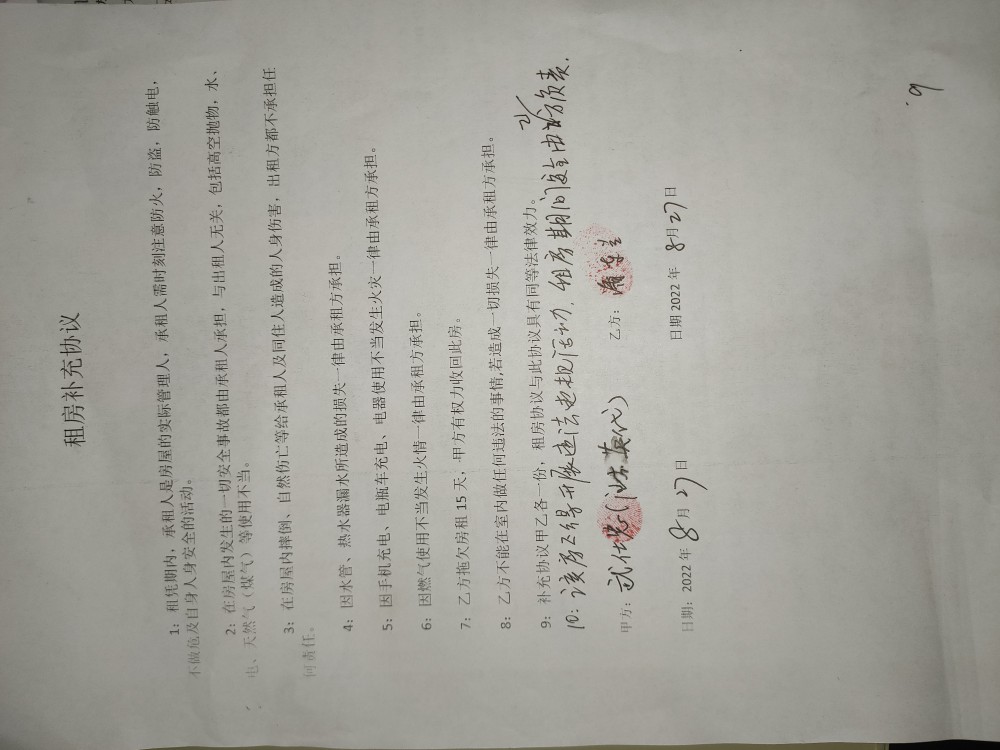 租房补充协议
1：租凭期内，承租人是房屋的实际管理人，承租人需时刻注意防火，防盗，防触电，
不做危及自身人身安全的活动。
2：在房屋内发生的一切安全事故都由承租人承担，与出租人无关，包括高空抛物，水、
电、天然气（煤气）等使用不当。
3：在房屋内摔倒、自然伤亡等给承租人及同住人造成的人身伤害，出租方都不承担任
何责任。
4：因水管、热水器漏水所造成的损失一律由承租方承担。
5：因手机充电、电瓶车充电、电器使用不当发生火灾一律由承租方承担。
6：因燃气使用不当发生火情一律由承租方承担。
7：乙方拖欠房租 15 天，甲方有权力收回此房。
8：乙方不能在室内做任何违法的事情,若造成一切损失一律由承租方承担。
9：补充协议甲乙各一份，租房协议与此协议具有同等法律效力。
10：该房不得开展违法违规活动，租房期间安全由乙方负责.
甲方： 武仕 代）
乙方：
日期：2022 年 8月 27 日
日期 2022 年 8月 27 日
9